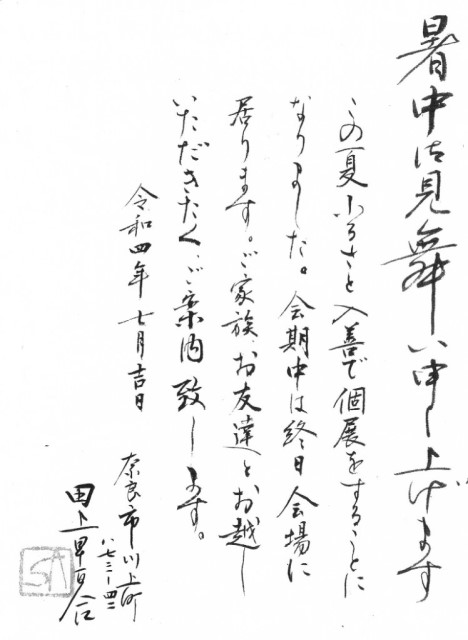 暑中御見舞い申し上げます
この夏ふるさと入善で個展をすることに
なりました。会期中は終日会場に
居ります。ご家族、お友達とお越し
いただきたく、ご案内致します。
令和四年七月吉日
奈良市川上町
八七三−四二
田上早百合